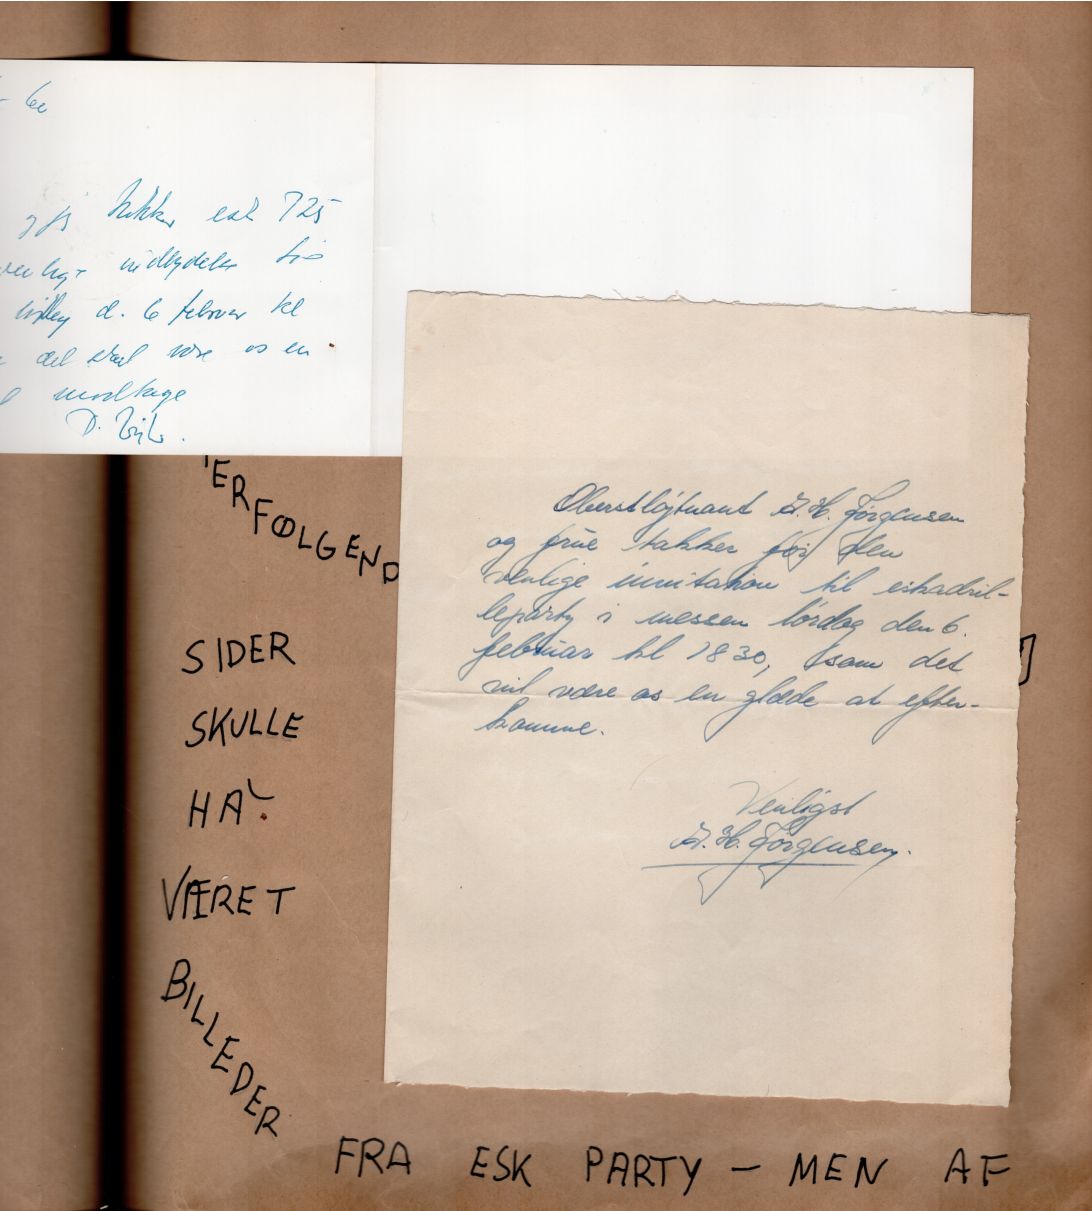 takker esk 725
indbydelse
d. 6 februar kl
det skal være os en
modtage
ERFØLGEND
SIDER
SKULLE
HA'
VÆRET
BILLEDER
FRA ESK PARTY — MEN AF
Oberstløjtnant A. H. Jørgensen
og frue takker for den
venlige invitation til eskadril-
leparty i messen lørdag den 6.
februar kl 1830, som det
vil være os en glæde at efter-
komme.
Venligst
A. H. Jørgensen.